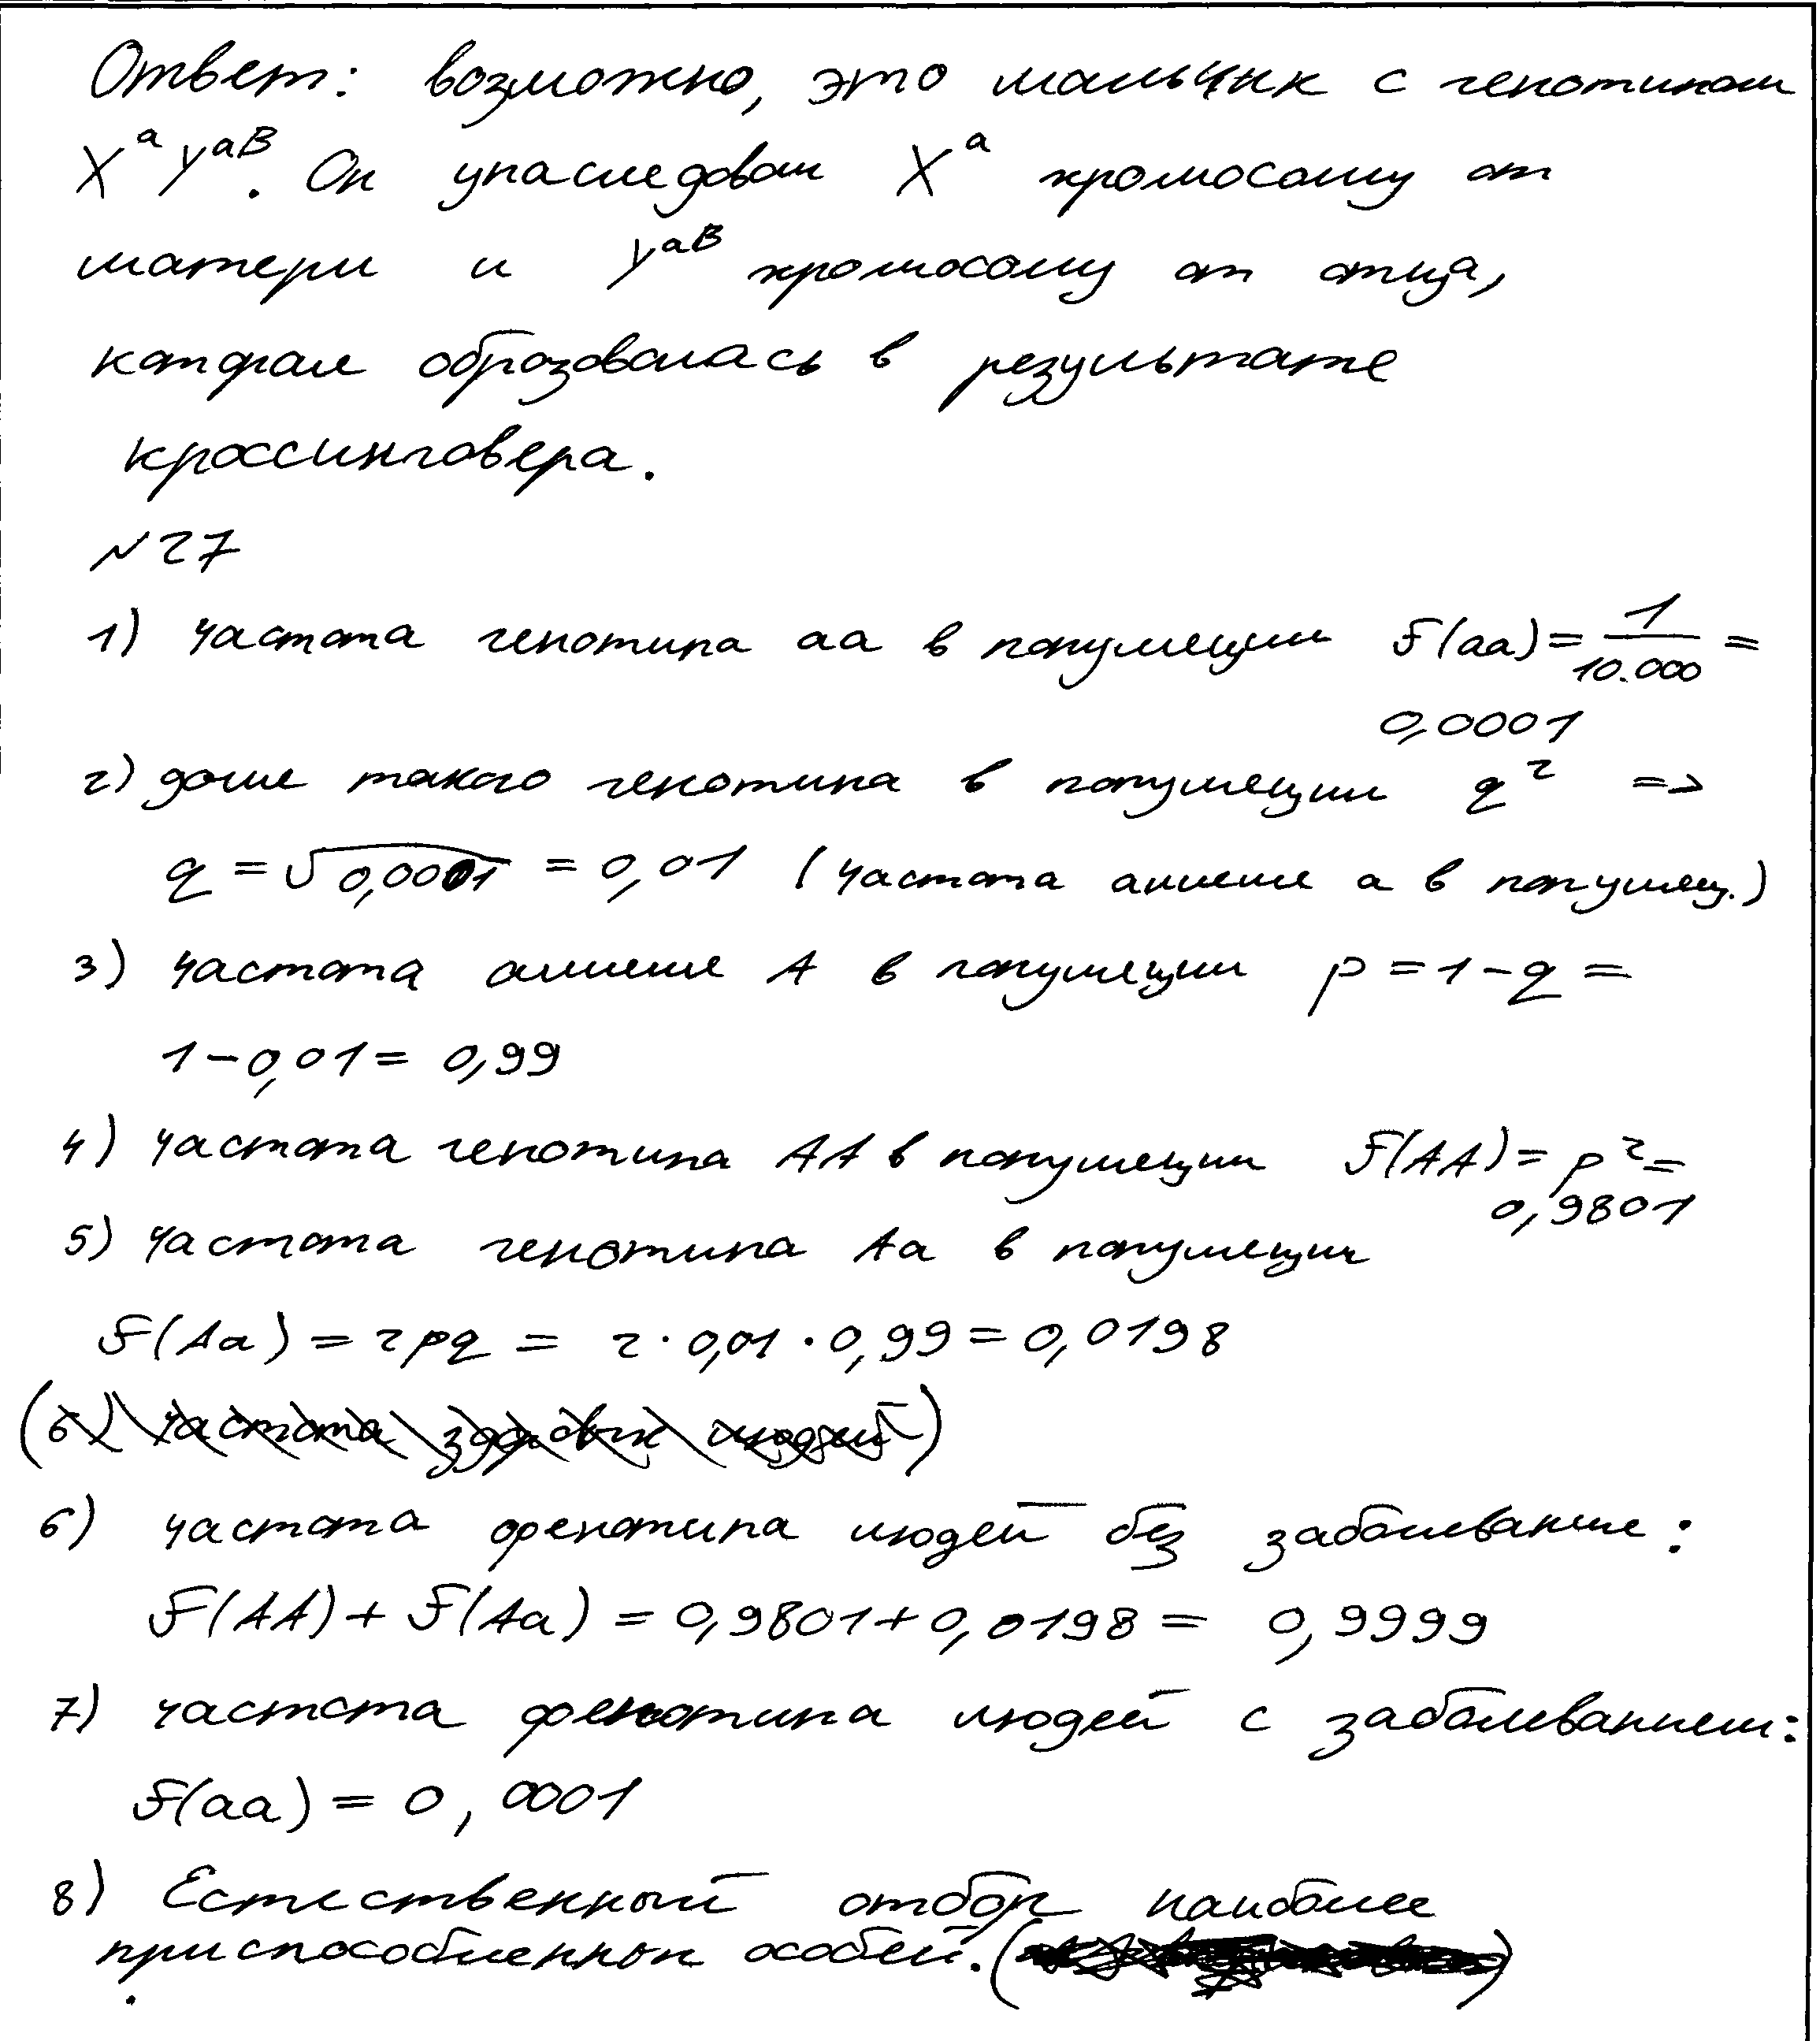 Ответ: возможно, это мальчик с генотипом
XᵃYᵃᴮ. Он унаследовал Xᵃ хромосому от
матери и Yᵃᴮ хромосому от отца,
которая образовалась в результате
кроссинговера.
№27
1) частота генотипа aa в популяции F(aa) = 1/10.000 =
0,0001
2) доля такого генотипа в популяции q² =>
q = √0,0001 = 0,01 (частота аллеля a в популяц.)
3) частота аллеля A в популяции p = 1 - q =
1 - 0,01 = 0,99
4) частота генотипа AA в популяции F(AA) = p² =
0,9801
5) частота генотипа Aa в популяции
F(Aa) = 2pq = 2 · 0,01 · 0,99 = 0,0198
(6) частота здоровых людей)
6) частота фенотипа людей без заболевания:
F(AA) + F(Aa) = 0,9801 + 0,0198 = 0,9999
7) частота фенотипа людей с заболеванием:
F(aa) = 0,0001
8) Естественный отбор наиболее
приспособленных особей.